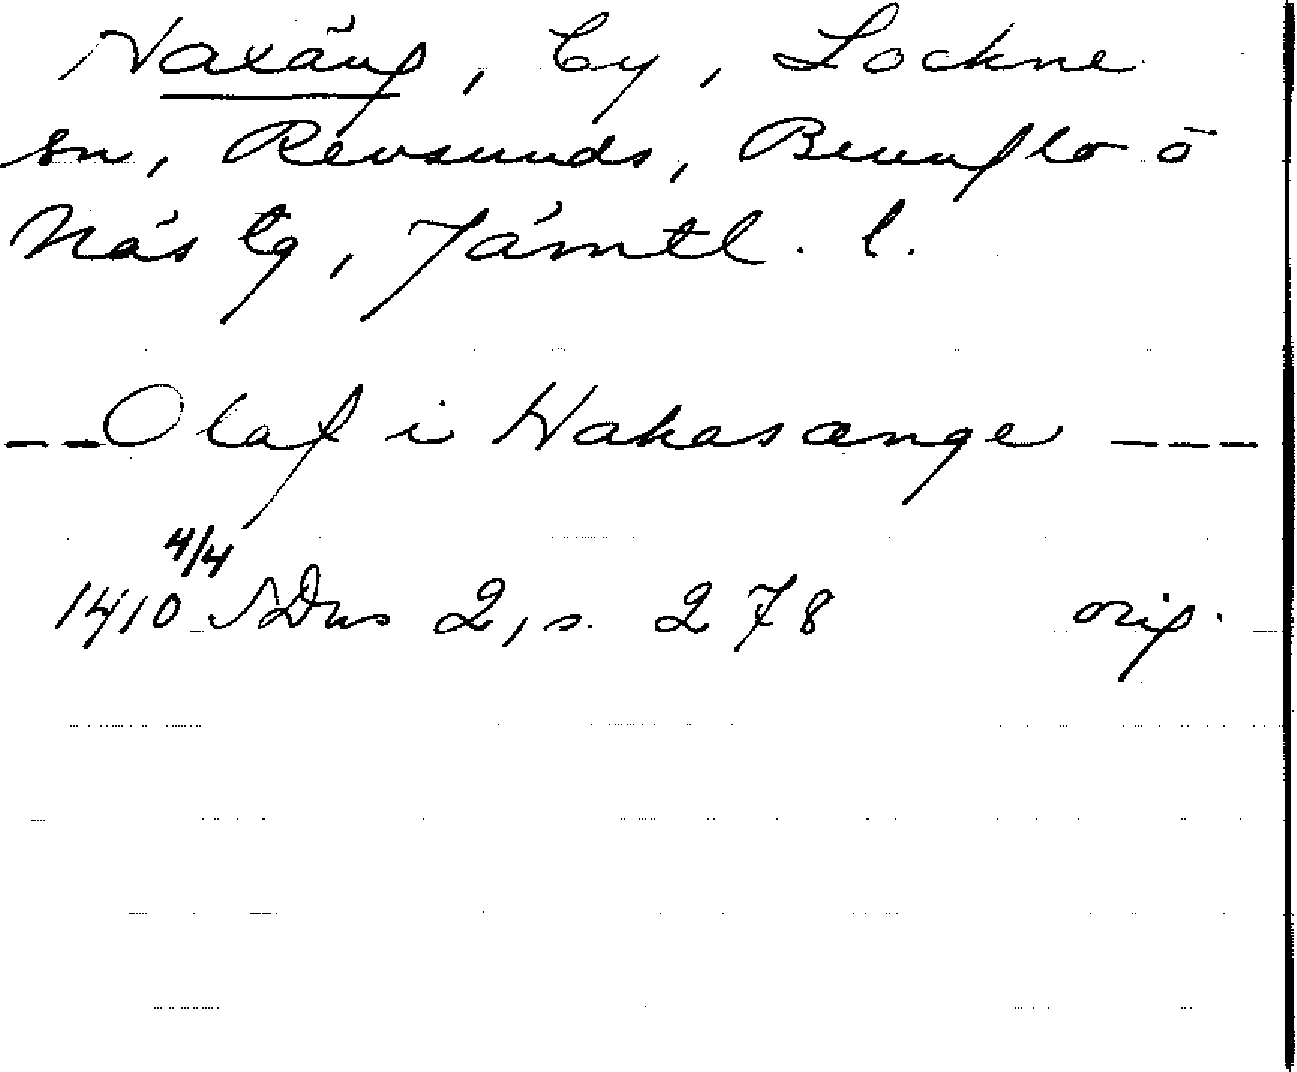 Haxäng, by, Lockne
sn, Revsunds, Brunflo o
Näs tg, Jämtl. l.
--Olaf i Hakasænge ---
4/4
1410 SDns 2, s. 278 orig.